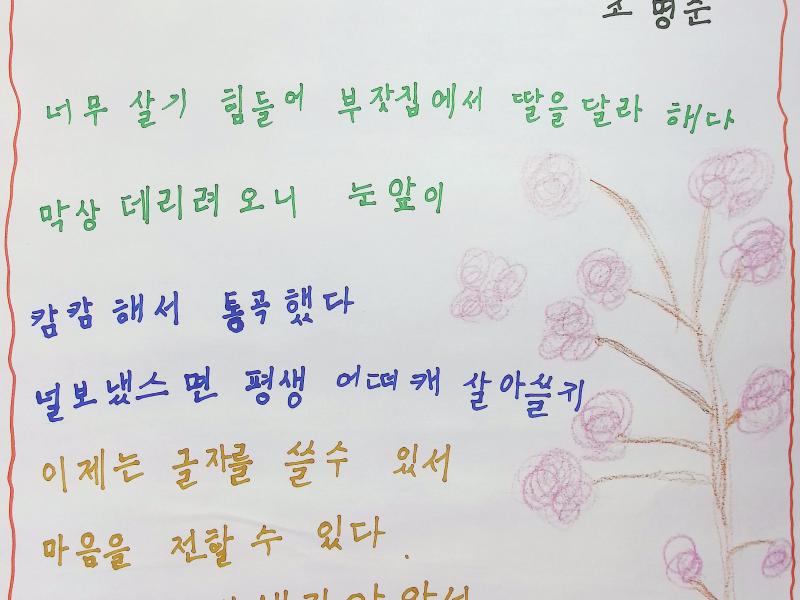 조 명순
너무 살기 힘들어 부잣집에서 딸을 달라 해다
막상 데리려 오니 눈앞이
캄캄해서 통곡했다
널보냈스면 평생 어떠캐 살아쓸키
이제는 글자를 쓸수 있서
마음을 전할 수 있다.